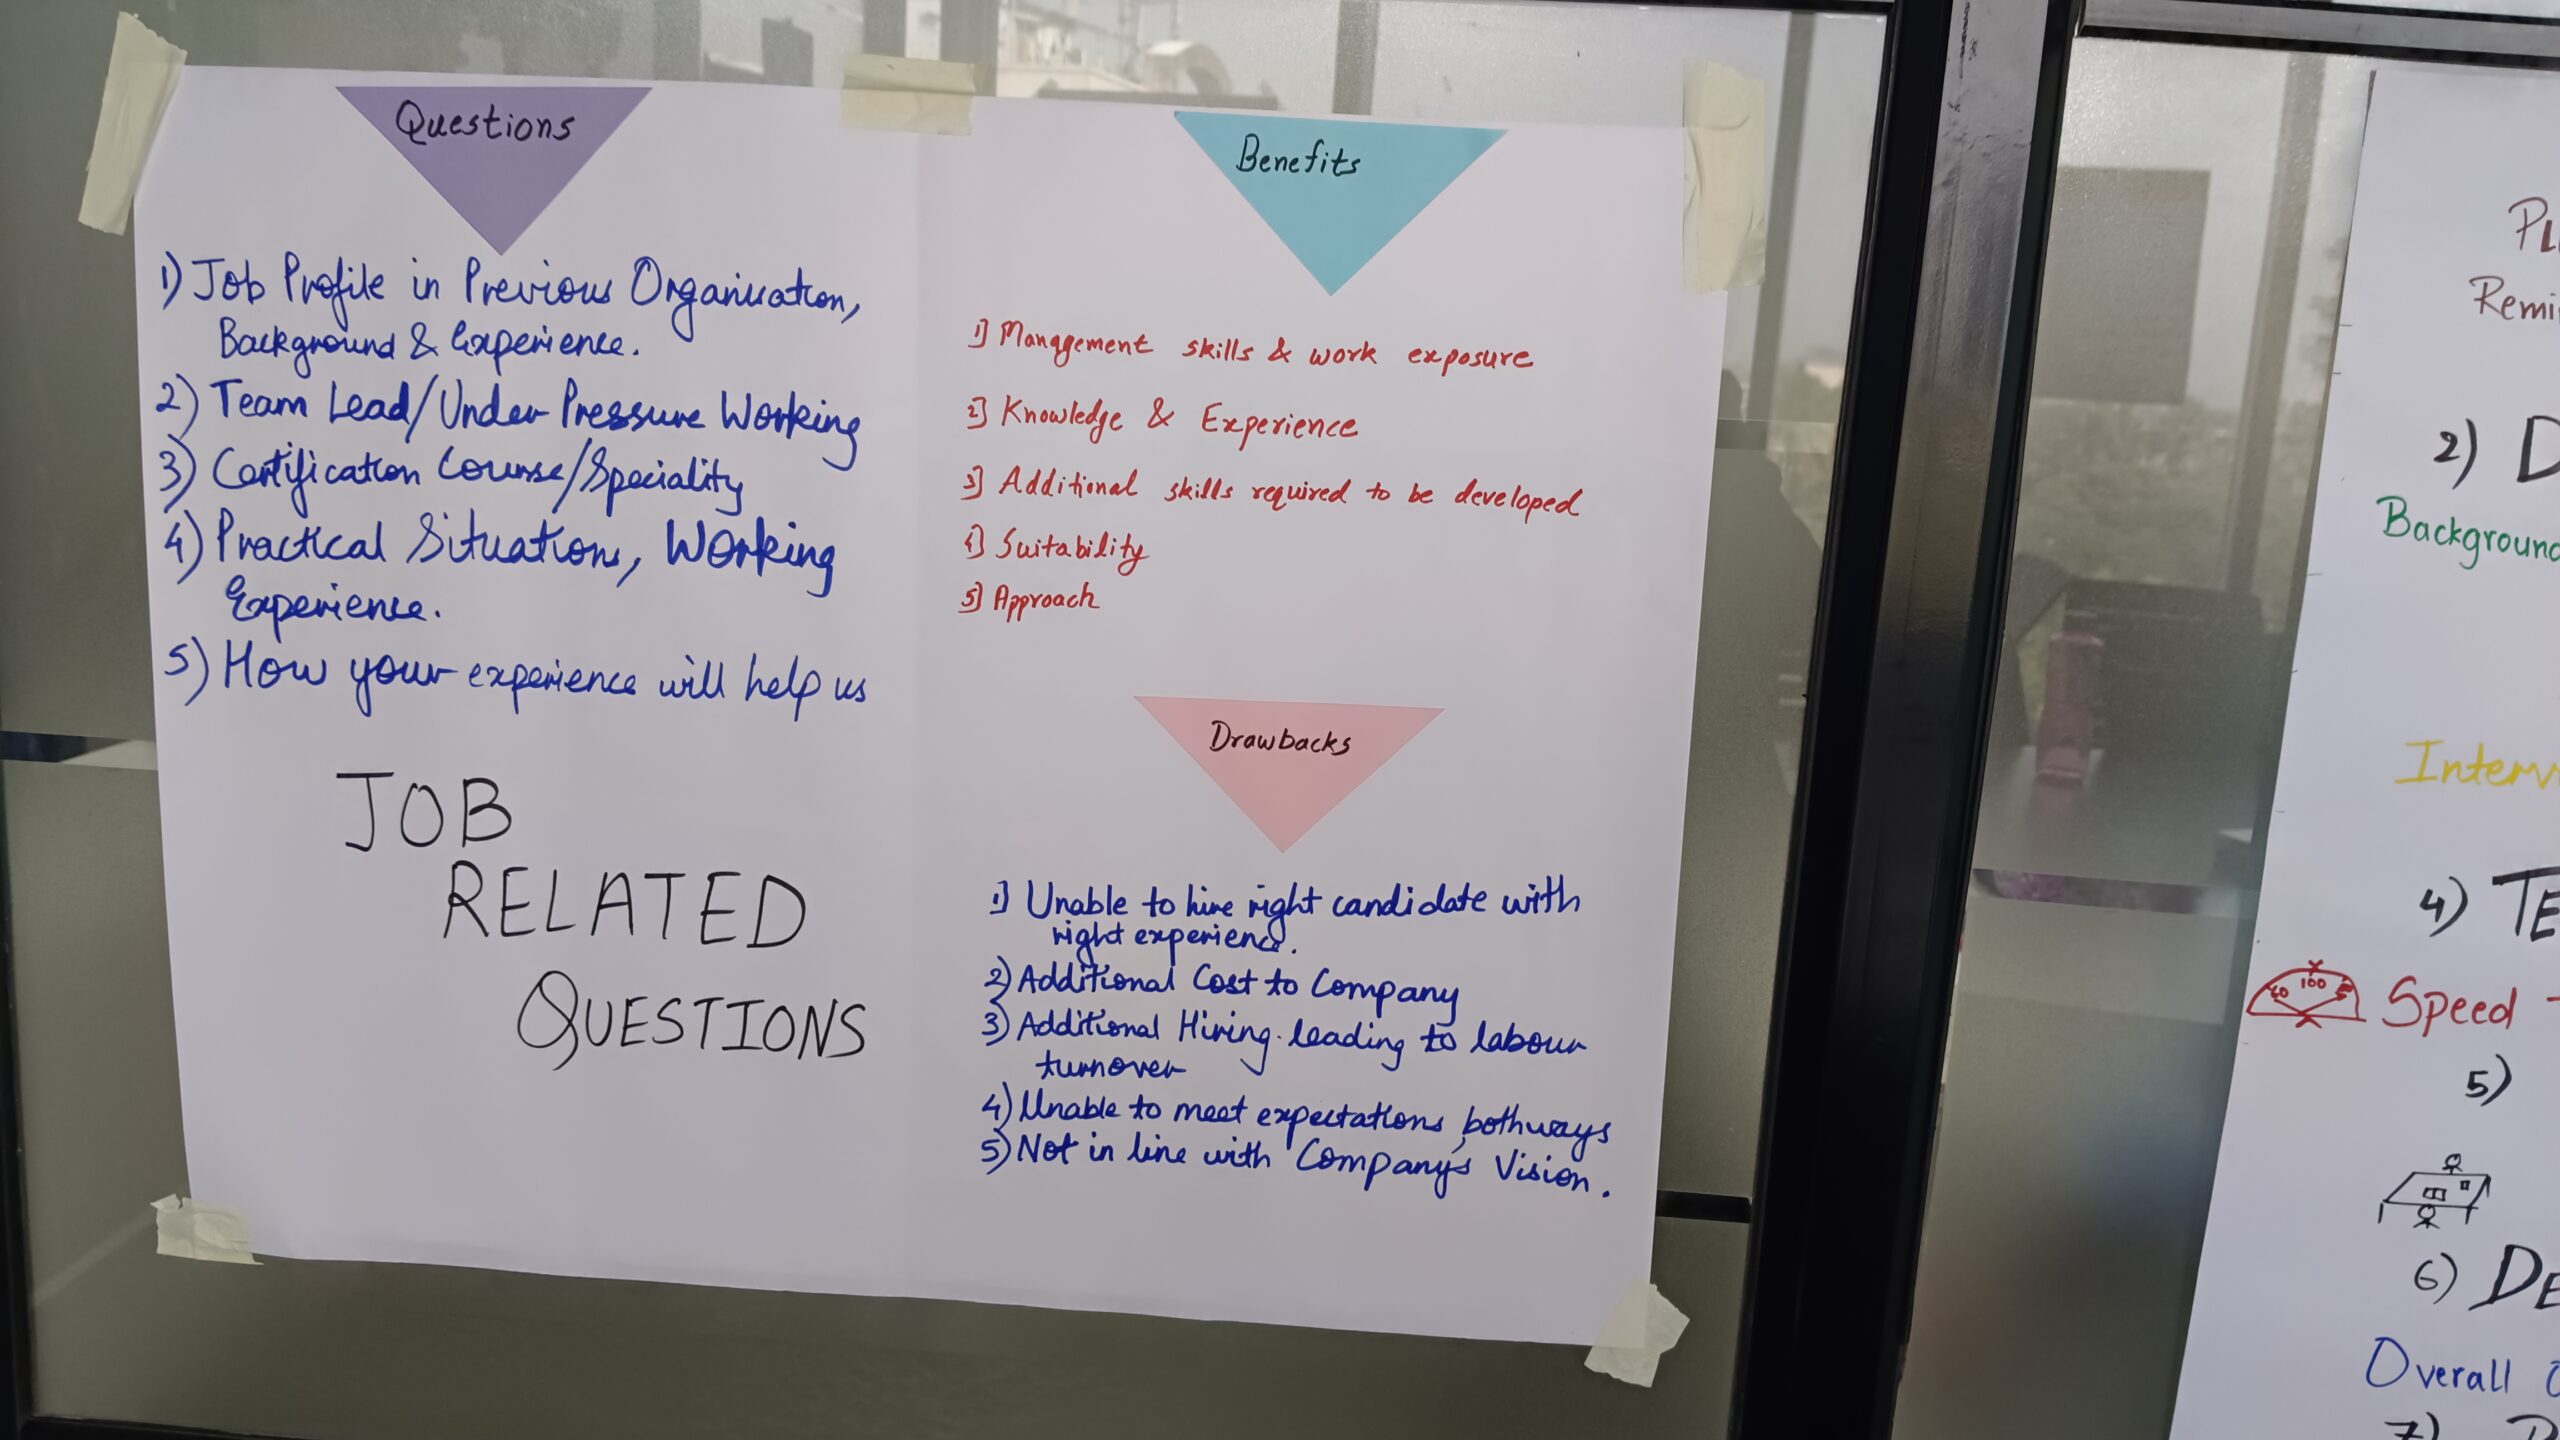 Questions
1) Job Profile in Previous Organisation,
Background & Experience.
2) Team Lead/Under Pressure Working
3) Certification Course/Speciality
4) Practical Situations, Working
Experience.
5) How your experience will help us
JOB
RELATED
QUESTIONS
Benefits
1] Management skills & work exposure
2] Knowledge & Experience
3] Additional skills required to be developed
4] Suitability
5] Approach
Drawbacks
1] Unable to hire right candidate with
right experience.
2) Additional Cost to Company
3) Additional Hiring leading to labour
turnover
4) Unable to meet expectations, bothways
5) Not in line with Company's Vision.
2)
Background
4)
60 100
Speed
5)
6)
Overall
7)